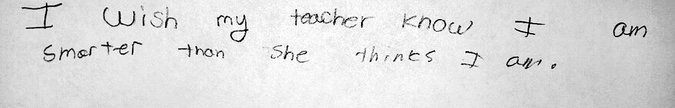 I wish my teacher know I am
smarter than she thinks I am.